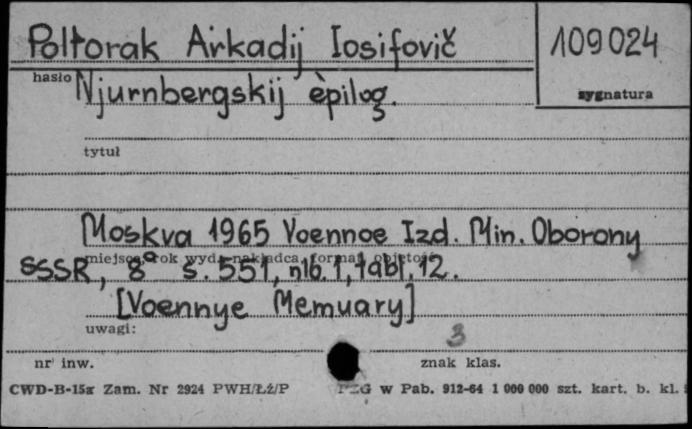 Poltorak Arkadij Iosifovič
109024
hasło
Njurnbergskij èpilog.
sygnatura
tytuł
Moskva 1965 Voennoe Izd. Min. Oborony
miejsce, rok wyd., nakładca, format, objętość
SSSR, 8° s. 551, nlb. 1, tabl. 12.
[Voennye Memuary]
uwagi:
3
nr inw.
znak klas.
CWD-B-15a Zam. Nr 2924 PWH/Łź/P
w Pab. 912-64 1 000 000 szt. kart. b. kl.